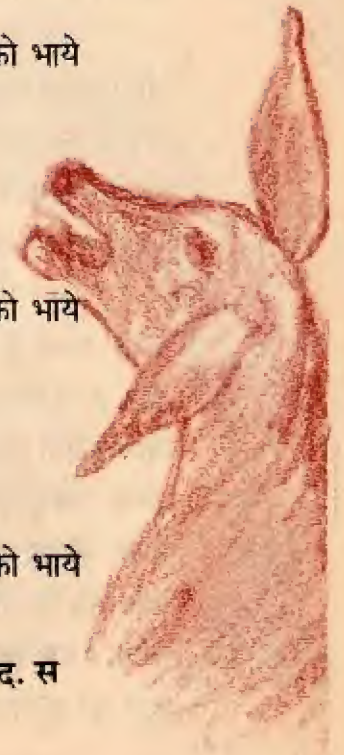 को भाये
को भाये
को भाये
द. स